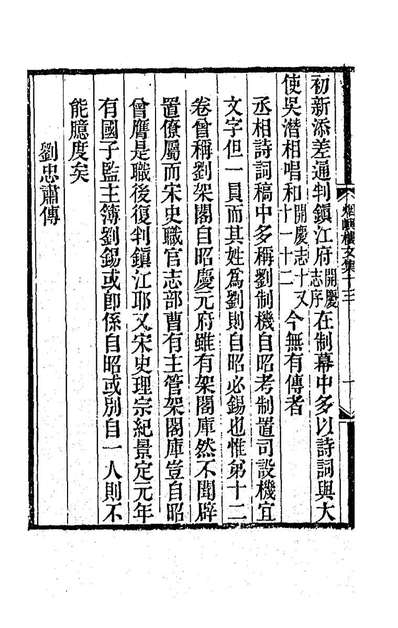 初新添差通判鎮江府開慶志序在制幕中多以詩詞與大
使吳潛相唱和開慶志十又十一十二今無有傳者
丞相詩詞稿中多稱劉制機自昭考制置司設機宜
文字但一員而其姓爲劉則自昭必錫也惟第十二
卷曾稱劉架閣自昭慶元府雖有架閣庫然不聞辟
置僚屬而宋史職官志部曹有主管架閣庫豈自昭
曾膺是職後復判鎮江耶又宋史理宗紀景定元年
有國子監主簿劉錫或卽係自昭或別自一人則不
能臆度矣
劉忠肅傳
烟嶼樓文集十三